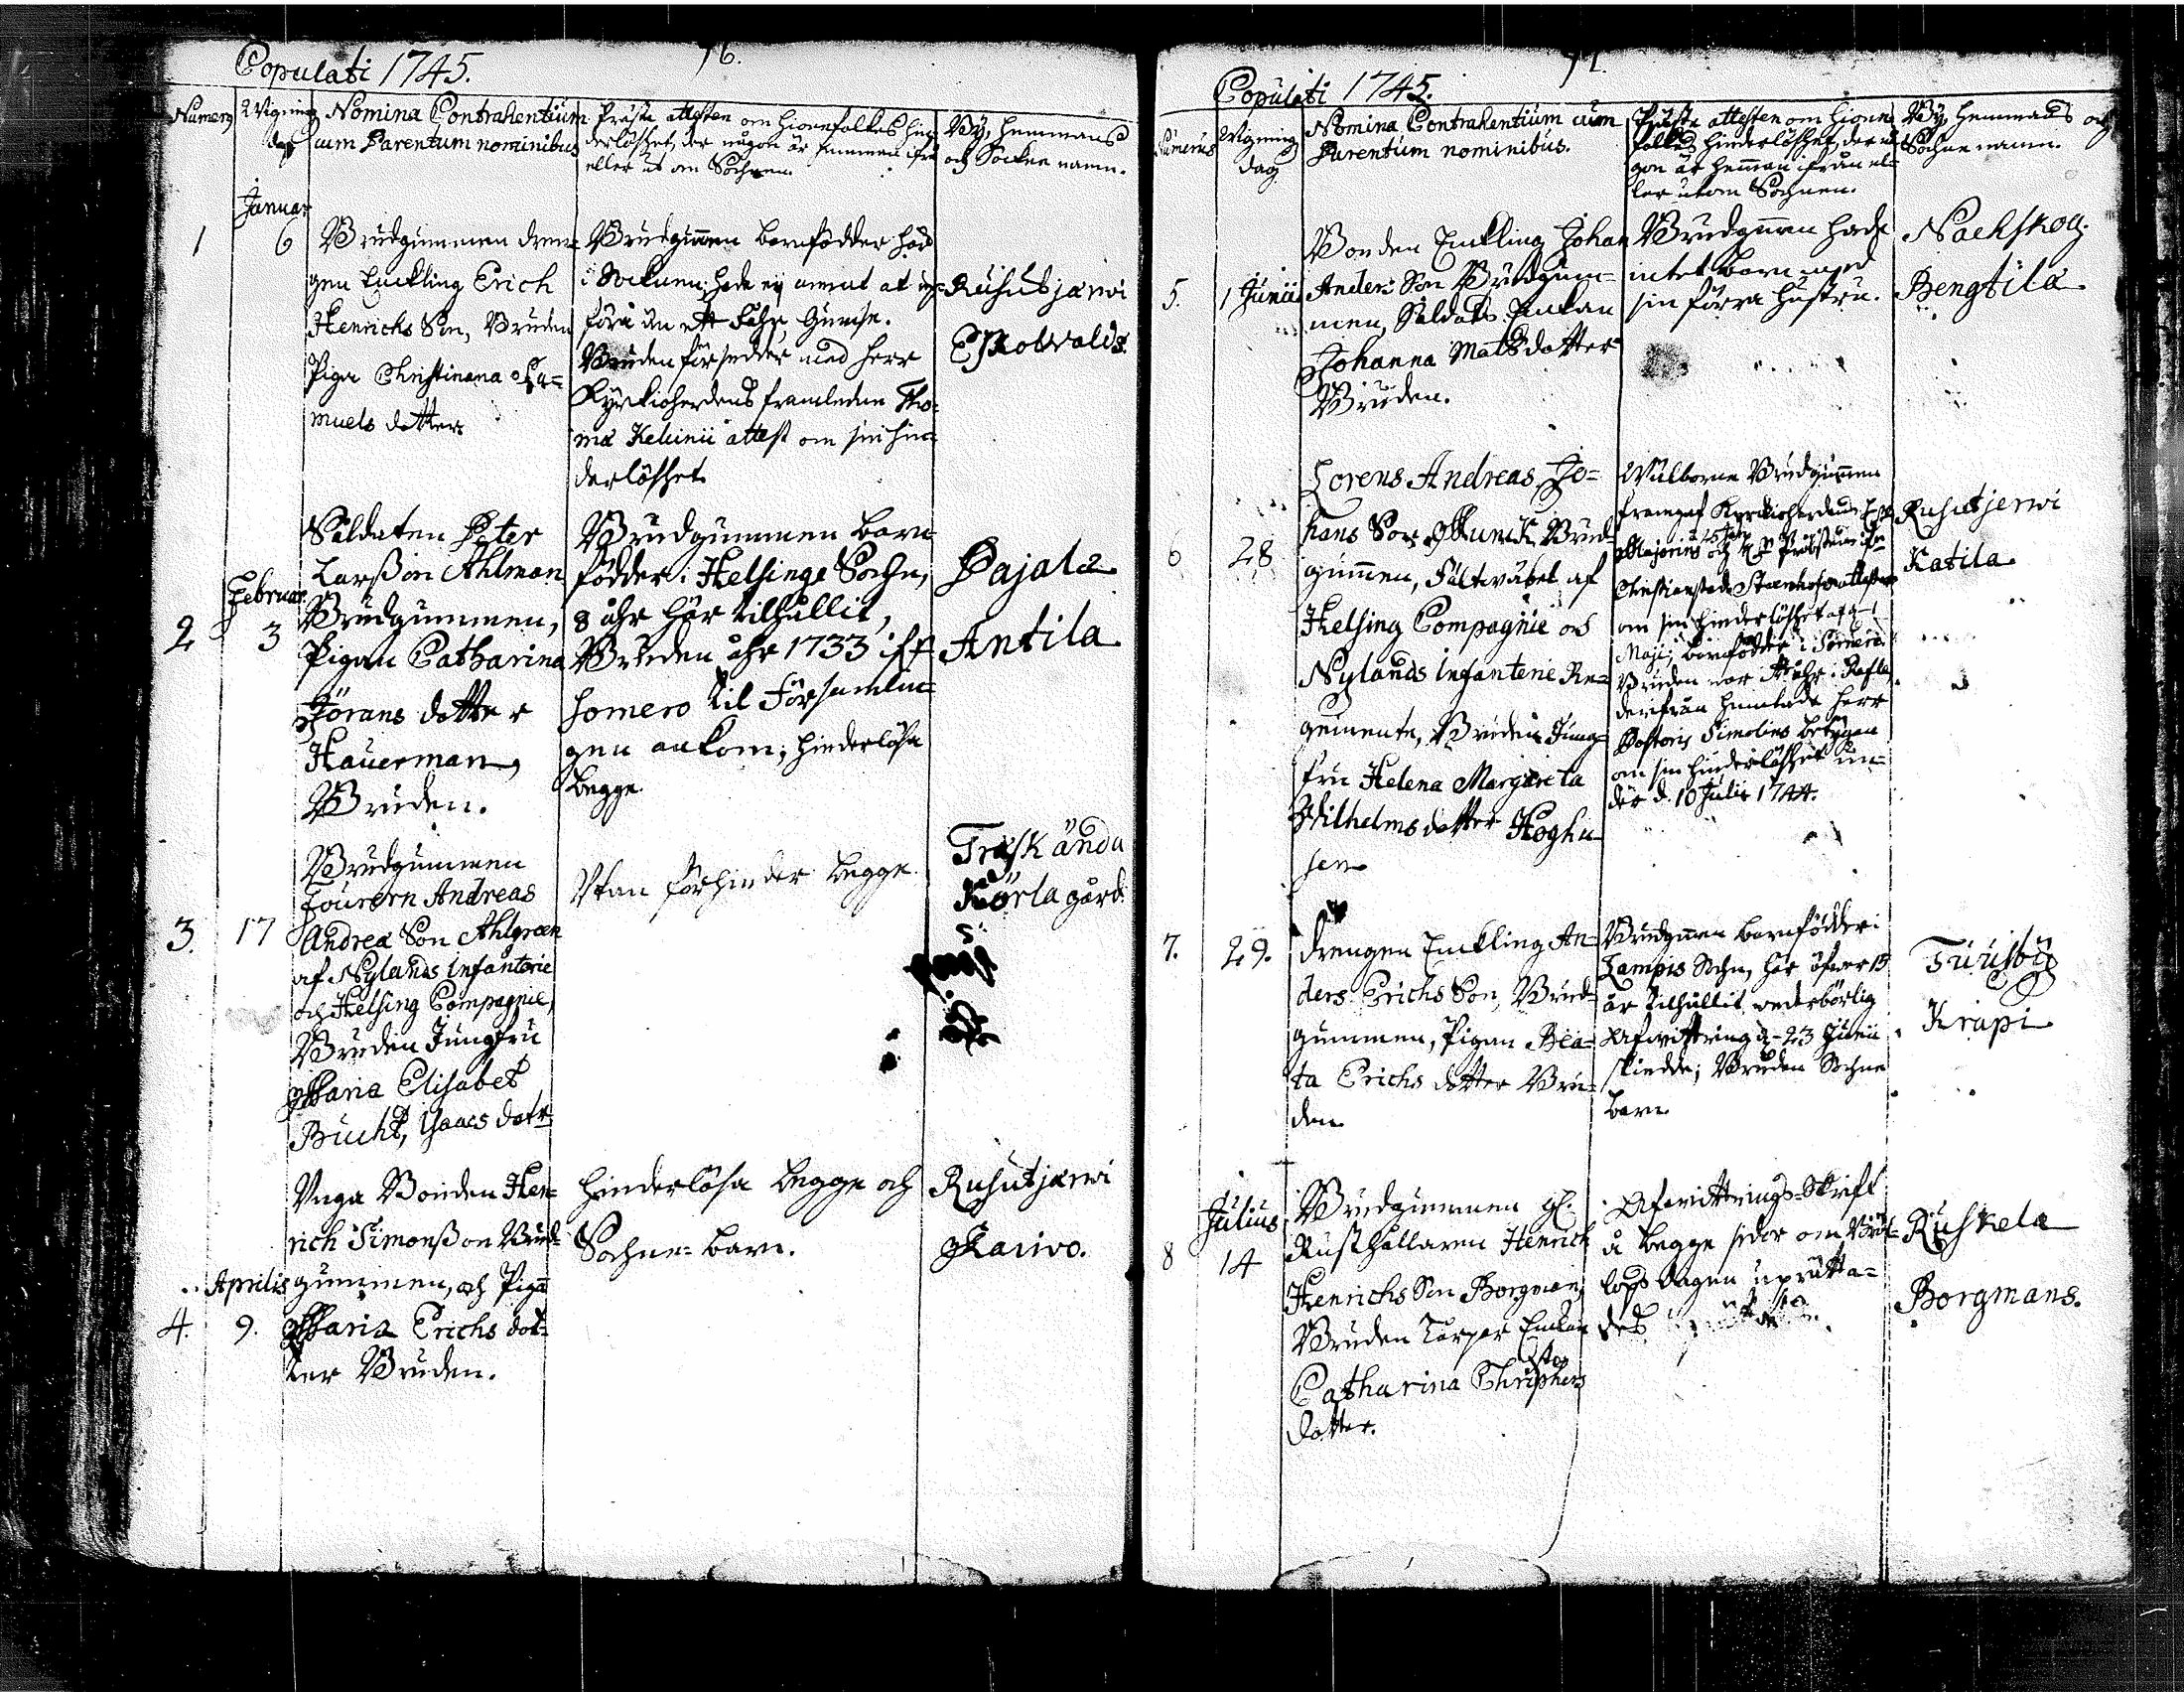 Copulati 1745.
76.
Numerus
Wigning
dag
Nomina Contrahentium
cum Parentum nominibus
Präste attesten om hionefolkes hin-
derlöshet, der någon är kommen ifrå
eller ut om Sochnen.
By, hemmans
och Sochne namn.
Januar
1
6
Brudgummen dren-
gen Enckling Erich
Henrichs Son, Bruden
Pigan Christina Sa-
muels dotter
Brudgummen barnfödder
i Sochnen; hade ej annat at up-
föra än ett
Bruden försedder med herr
Kyrckioherdens framledne Tho-
mæ attest om sin hin-
derlöshet
Rusutjärwi
Skowalds.
Februar.
2
3
Soldaten Peter
Larsson Ahlman
Brudgummen,
Pigan Catharina
Jörans dotter
Hauerman,
Bruden.
Brudgummen barn-
födder i Helsinge Sochn,
8 åhr här tilhållit,
Bruden åhr 1733 iff
Somero til församlin-
gen ankom; hinderlösa
begge.
Pajala
Antila
3.
17
Brudgummen
Fourern Andreas
Andreæ Son Ahlgreen
af Nylands Infanterie
och Helsing Compagnie,
Bruden Jungfru
Maria Elisabet
Bucht, Isaacs dotr
Utan förhinder begge
Träskända
Körla gård
Aprilis
4.
9.
Unga Bonden Hen-
rich Simonsson Brud-
gummen, och Pigan
Maria Erichs dot-
ter Bruden.
hinderlösa begge och
Sochne-barn.
Rusutjärwi
Kariwo.
Copulati 1745.
Numerus
Wigning
dag
Nomina Contrahentium cum
Parentum nominibus.
Präste attesten om hione
folkes hinderlöshet, der nå-
gon är kommen ifrån el-
ler utom Sochnen.
By, hemmans och
Sochne namn.
5.
1 Junii
Bonden Enckling Johan
Anders Son Brudgum-
men, Soldats Enckan
Johanna Matsdotter
Bruden.
Brudgummen hade
intet barn med
sin förra hustru.
Nackskog.
Bengtila
6
28
Lorens Andreas Jo-
hans Son Munck, Brud-
gummen, Fältwäbel af
Helsing Compagnie och
Nylands Infanterie Re-
gemente, Bruden Jung-
fru Helena Margareta
Wilhelms dotter Hoghu-
sen
Wälborne Brudgummen
framgaf Kyrckioherdens
och Probstens
Christianstads attester
om sin hinderlöshet
Maji; barnfödder i Somero.
Bruden war ett åhr i
derifrån hemtade herr
Pastoris Simolins betygen
om sin hinderlöshet un-
der d. 10 Julii 1744.
Rusutjerwi
Katila
7.
29.
drengen Enckling An-
ders Erichs Son, Brud-
gummen, Pigan Bea-
ta Erichs dotter Bru-
den
Brudgummen barnfödder i
Lampis Sochn, här öfwer 15
år tilhållit wederbörlig
Afwittring d. 23 Junii
skiedde; Bruden Sochne
barn.
Tuusby
Krapi
Julius
8
14
Brudgummen gl.
Rusthållaren Henrich
Henrichs Son Borgman,
Bruden Torpar Enckan
Catharina Christophers
dotter.
Afwittrings-Skrift
å begge sidor om Bröl-
lops dagen uprätta-
des
Ruskela
Borgmans.